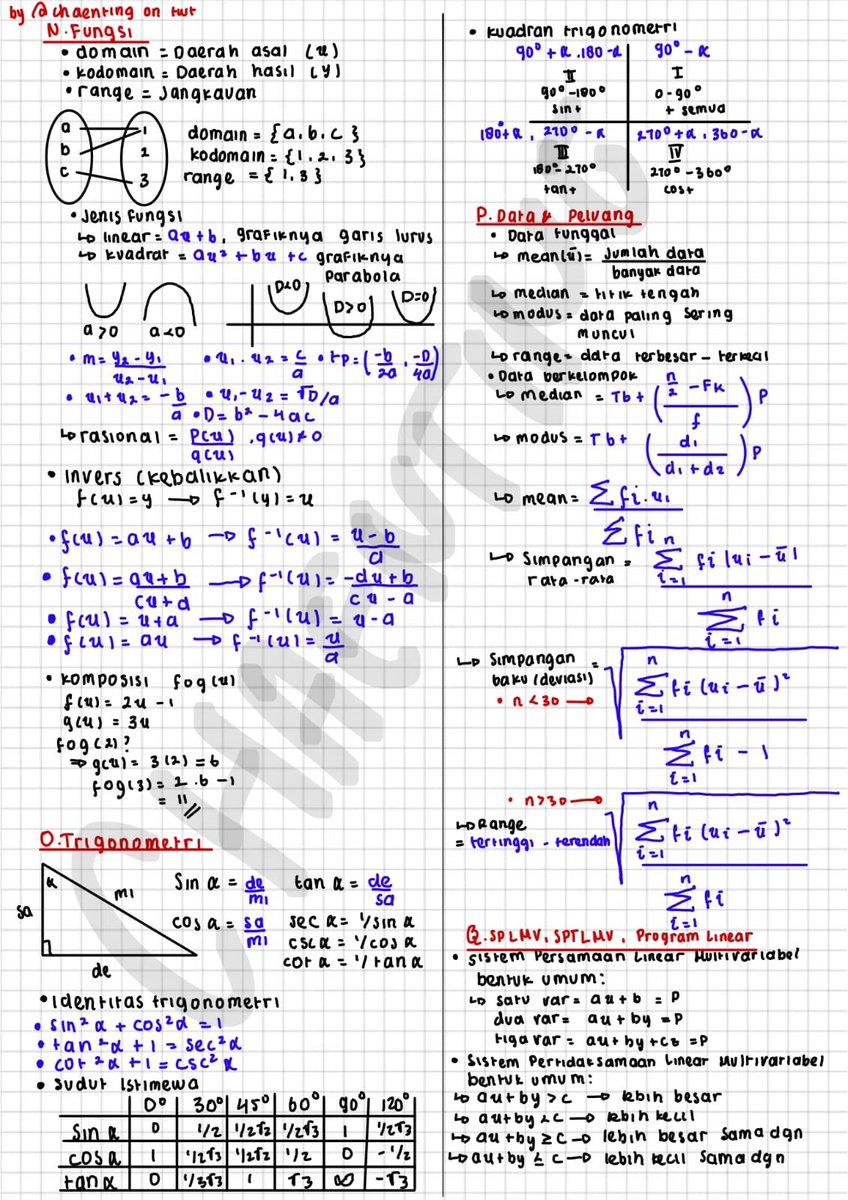 by @chaenting on twt
N. Fungsi
• domain = Daerah asal (u)
• kodomain = Daerah hasil (y)
• range = Jangkauan
a
b
c
1
2
3
domain = {a, b, c}
kodomain = {1, 2, 3}
range = {1, 3}
• Jenis fungsi
↳ linear = au + b, grafiknya garis lurus
↳ kuadrat = au² + bu + c grafiknya
parabola
a > 0
a < 0
D<0
D>0
D=0
• m = y₂ - y₁ / u₂ - u₁
• u₁ . u₂ = c/a
• tp = (-b/2a, -D/4a)
• u₁ + u₂ = -b/a
• u₁ - u₂ = √D/a
• D = b² - 4ac
↳ rasional = P(u)/q(u), q(u) ≠ 0
• Invers (kebalikkan)
f(u) = y → f⁻¹(y) = u
• f(u) = au + b → f⁻¹(u) = u - b / a
• f(u) = au + b / cu + d → f⁻¹(u) = -du + b / cu - a
• f(u) = u + a → f⁻¹(u) = u - a
• f(u) = au → f⁻¹(u) = u/a
• Komposisi fog(u)
f(u) = 2u - 1
g(u) = 3u
fog(2)?
⇒ g(u) = 3(2) = 6
fog(3) = 2 . 6 - 1
= 11
O. Trigonometri
α
sa
mi
de
sin α = de/mi
tan α = de/sa
cos α = sa/mi
sec α = 1/sin α
csc α = 1/cos α
cot α = 1/tan α
• Identitas trigonometri
• sin²α + cos²α = 1
• tan²α + 1 = sec²α
• cot²α + 1 = csc²α
• Sudut Istimewa
0° 30° 45° 60° 90° 120°
sin α 0 1/2 1/2√2 1/2√3 1 1/2√3
cos α 1 1/2√3 1/2√2 1/2 0 -1/2
tan α 0 1/3√3 1 √3 ∞ -√3
• Kuadran trigonometri
90° + α . 180 - α
90° - α
II
90° - 180°
sin +
I
0 - 90°
+ semua
180 + α, 270° - α
270° + α, 360 - α
III
180° - 270°
tan +
IV
270° - 360°
cos +
P. Data & Peluang
• Data Tunggal
↳ mean (ū) = Jumlah data / banyak data
↳ median = titik tengah
↳ modus = data paling sering
muncul
↳ range = data terbesar - terkecil
• Data berkelompok
↳ median = Tb + (n/2 - Fk / f) P
↳ modus = Tb + (d₁ / d₁ + d₂) P
↳ mean = Σ fi . ui / Σ fi
↳ Simpangan rata-rata = n Σ i=1 fi |ui - ū| / n Σ i=1 fi
↳ Simpangan
baku (deviasi) =
• n < 30 →
√ n Σ i=1 fi (ui - ū)² / n Σ i=1 fi - 1
• n > 30 →
√ n Σ i=1 fi (ui - ū)² / n Σ i=1 fi
↳ Range
= tertinggi - terendah
Q. SPLMV, SPTLMV, Program Linear
• Sistem Persamaan Linear Multivariabel
bentuk umum:
↳ satu var = au + b = P
dua var = au + by = P
tiga var = au + by + cz = P
• Sistem Pertidaksamaan Linear Multivariabel
bentuk umum:
↳ au + by > c → lebih besar
↳ au + by < c → lebih kecil
↳ au + by ≥ c → lebih besar sama dgn
↳ au + by ≤ c → lebih kecil sama dgn
CHAENTING